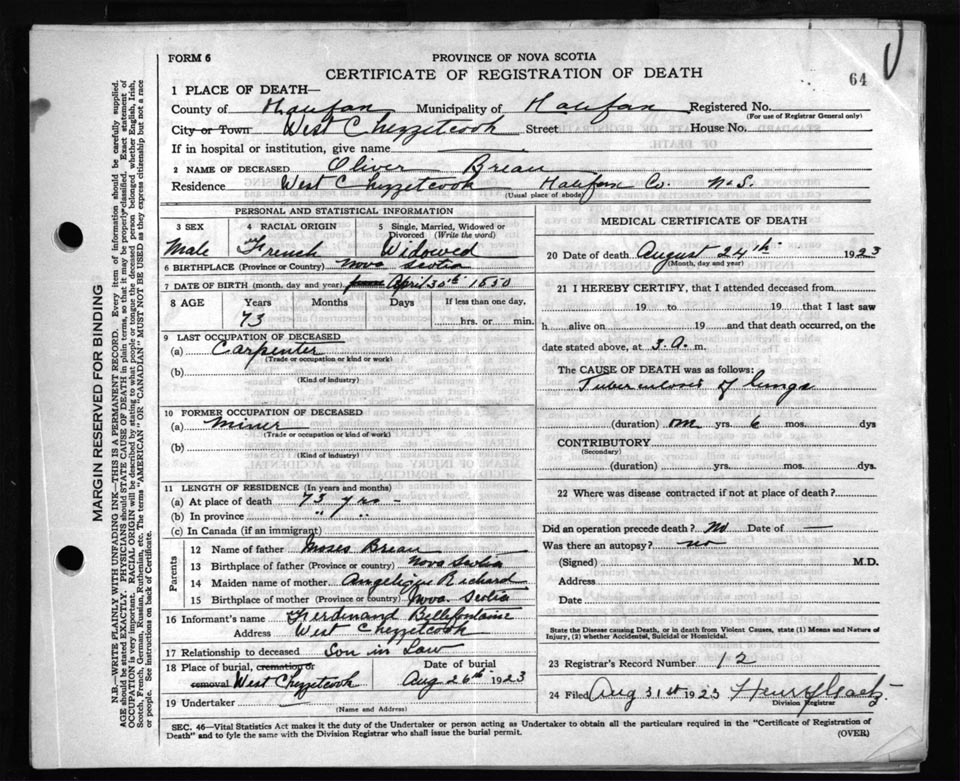 FORM 6
PROVINCE OF NOVA SCOTIA
CERTIFICATE OF REGISTRATION OF DEATH
64
1 PLACE OF DEATH—
County of Halifax Municipality of Halifax Registered No.
(For use of Registrar General only)
City or Town West Chezzetcook Street House No.
If in hospital or institution, give name
2 NAME OF DECEASED Oliver Breau
Residence West Chezzetcook Halifax Co. N.S.
(Usual place of abode)
PERSONAL AND STATISTICAL INFORMATION
3 SEX
Male
4 RACIAL ORIGIN
French
5 Single, Married, Widowed or
Divorced (Write the word)
Widowed
6 BIRTHPLACE (Province or Country) Nova Scotia
7 DATE OF BIRTH (month, day and year) April 30th 1850
8 AGE Years Months Days If less than one day,
73 hrs. or min.
9 LAST OCCUPATION OF DECEASED
(a) Carpenter
(Trade or occupation or kind or work)
(b)
(Kind of industry)
10 FORMER OCCUPATION OF DECEASED
(a) Miner
(Trade or occupation or kind of work)
(b)
(Kind of industry)
11 LENGTH OF RESIDENCE (In years and months)
(a) At place of death 73 yrs -
(b) In province " " "
(c) In Canada (if an immigrant)
Parents
12 Name of father Moses Breau
13 Birthplace of father (Province or country) Nova Scotia
14 Maiden name of mother Angelique Richard
15 Birthplace of mother (Province or country) Nova Scotia
16 Informant's name Ferdinand Bellefontaine
Address West Chezzetcook
17 Relationship to deceased Son in Law
18 Place of burial, cremation or
removal West Chezzetcook
Date of burial
Aug 26th 1923
19 Undertaker
(Name and Address)
MEDICAL CERTIFICATE OF DEATH
20 Date of death August 24th 1923
(Month, day and year)
21 I HEREBY CERTIFY, that I attended deceased from
19 to 19 that I last saw
h alive on 19 and that death occurred, on the
date stated above, at 3.a. m.
The CAUSE OF DEATH was as follows:
Tuberculosis of lungs
(duration) yrs. 6 mos. dys
CONTRIBUTORY
(Secondary)
(duration) yrs. mos. dys.
22 Where was disease contracted if not at place of death?
Did an operation precede death? No Date of —
Was there an autopsy? no
(Signed) M.D.
Address
Date
State the Disease causing Death, or in death from Violent Causes, state (1) Means and Nature of
Injury, (2) whether Accidental, Suicidal or Homicidal.
23 Registrar's Record Number 12
24 Filed Aug 31st 1923
Division Registrar
SEC. 46—Vital Statistics Act makes it the duty of the Undertaker or person acting as Undertaker to obtain all the particulars required in the "Certificate of Registration of
Death" and to fyle the same with the Division Registrar who shall issue the burial permit. (OVER)
MARGIN RESERVED FOR BINDING
N.B.—WRITE PLAINLY WITH UNFADING INK—THIS IS A PERMANENT RECORD. Every item of information should be carefully supplied.
AGE should be stated EXACTLY. PHYSICIANS should STATE CAUSE OF DEATH in plain terms, so that it may be properly classified. Exact statement of
OCCUPATION is very important. RACIAL ORIGIN will be described by stating to what people or tongue the deceased person belonged whether English, Irish,
Scotch, French, German, Russian, Ruthenian, etc. The terms "AMERICAN" OR "CANADIAN" MUST NOT BE USED as they express citizenship but not a race
or people. See instructions on back of Certificate.